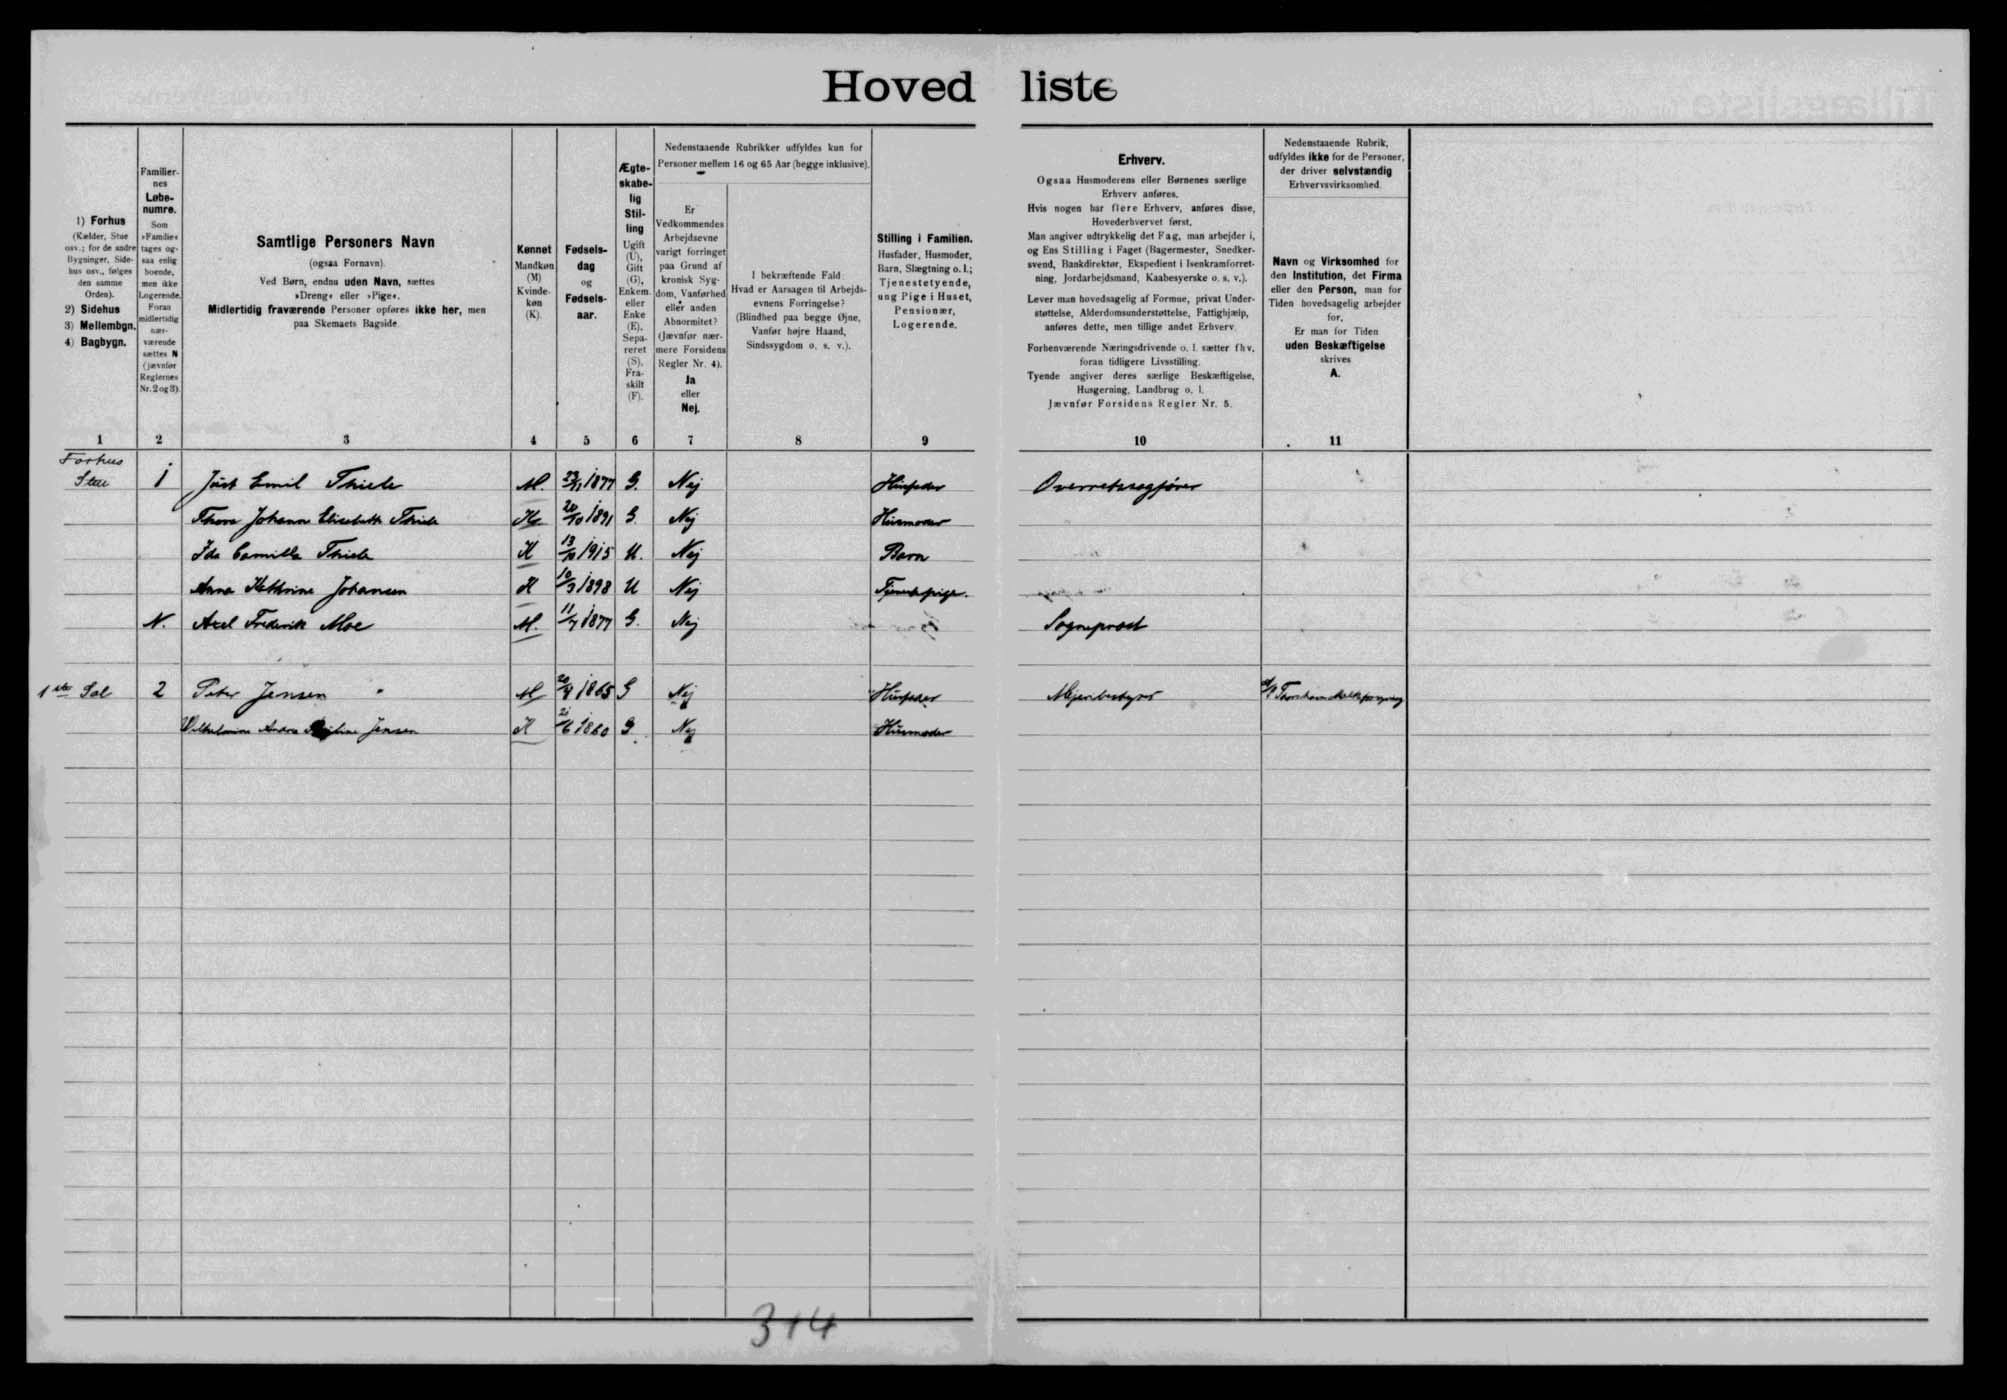 Hovedliste
1) Forhus
(Kælder, Stue
osv.; for de andre
Bygninger, Side-
hus osv., følges
den samme
Orden).
2) Sidehus
3) Mellembgn.
4) Bagbygn.
Familier-
nes
Løbe-
numre.
Som
»Familie«
tages og-
saa enlig
boende,
men ikke
Logerende.
Foran
midlertidig
nær-
værende
sættes N
(jævnfør
Reglernes
Nr. 2 og 3).
Samtlige Personers Navn
(ogsaa Fornavn).
Ved Børn, endnu uden Navn, sættes
»Dreng« eller »Pige«.
Midlertidig fraværende Personer opføres ikke her, men
paa Skemaets Bagside.
Kønnet
Mandkøn
(M)
Kvinde-
køn
(K).
Fødsels-
dag
og
Fødsels-
aar.
Ægte-
skabe-
lig
Stil-
ling
Ugift
(U),
Gift
(G),
Enkem.
eller
Enke
(E),
Sepa-
reret
(S),
Fra-
skilt
(F).
Nedenstaaende Rubrikker udfyldes kun for
Personer mellem 16 og 65 Aar (begge inklusive).
Er
Vedkommendes
Arbejdsevne
varigt forringet
paa Grund af
kronisk Syg-
dom, Vanførhed
eller anden
Abnormitet?
(Jævnfør nær-
mere Forsidens
Regler Nr. 4).
Ja
eller
Nej.
I bekræftende Fald:
Hvad er Aarsagen til Arbejds-
evnens Forringelse?
(Blindhed paa begge Øjne,
Vanfør højre Haand,
Sindssygdom o. s. v.).
Stilling i Familien.
Husfader, Husmoder,
Barn, Slægtning o. l.;
Tjenestetyende,
ung Pige i Huset,
Pensionær,
Logerende.
Erhverv.
Ogsaa Husmoderens eller Børnenes særlige
Erhverv anføres.
Hvis nogen har flere Erhverv, anføres disse,
Hovederhvervet først.
Man angiver udtrykkelig det Fag, man arbejder i,
og Ens Stilling i Faget (Bagermester, Snedker-
svend, Bankdirektør, Ekspedient i Isenkramforret-
ning, Jordarbejdsmand, Kaabesyerske o. s. v.).
Lever man hovedsagelig af Formue, privat Under-
støttelse, Alderdomsunderstøttelse, Fattighjælp,
anføres dette, men tillige andet Erhverv.
Forhenværende Næringsdrivende o. l. sætter fhv.
foran tidligere Livsstilling.
Tyende angiver deres særlige Beskæftigelse,
Husgerning, Landbrug o. l.
Jævnfør Forsidens Regler Nr. 5.
Nedenstaaende Rubrik,
udfyldes ikke for de Personer,
der driver selvstændig
Erhvervsvirksomhed.
Navn og Virksomhed for
den Institution, det Firma
eller den Person, man for
Tiden hovedsagelig arbejder
for.
Er man for Tiden
uden Beskæftigelse
skrives
A.
1 2 3 4 5 6 7 8 9 10 11
Forhus
Stue 1 Just Emil Thiele M. 1877 G. Nej Husfader Overretssagfører
Thora Johanne Elisabeth Thiele K. 20/10 1891 G. Nej Husmoder
Ida Camilla Thiele K 13/10 1915 U. Nej Barn
Anna Kathrine Johansen K 10/3 1898 U Nej Tjenestepige.
N. Axel Frederik Moe M. 11/7 1877 G. Nej Sogneprest
1ste Sal 2 Peter Jensen M 1865 G Nej Husfader Mejeribestyrer
Vilhelmine Andra Jensen K 1860 G. Nej Husmoder
314